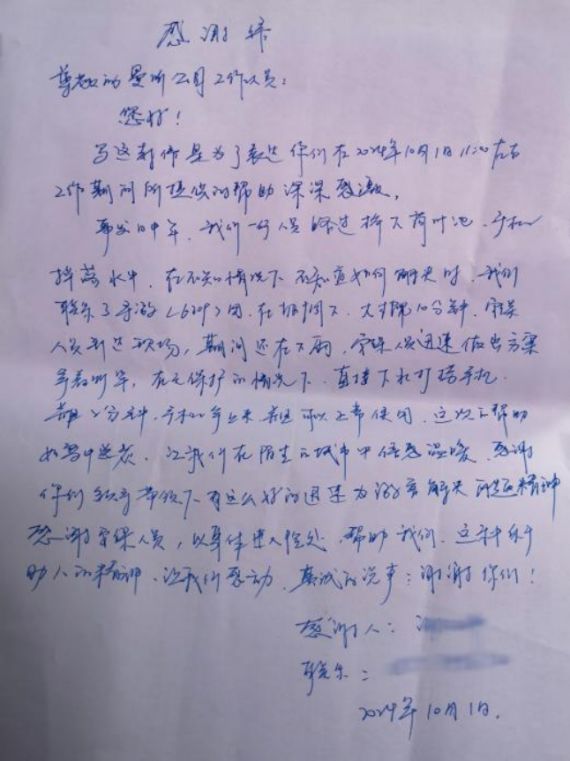 感谢信
尊敬的景所公司工作人员：
您好！
写这封信是为了表达你们在2024年10月1日11:20左右
工作期间所提供的帮助深深感激。
事发中午，我们一行人经过桥下荷叶池，手机
掉落水中，在不知情况下不知道如何解决时，我们
联系了导游<629>团，在协调下，大概10分钟，安保
人员到达现场，期间还在下雨，安保人员迅速做出方案
在无保护的情况下，直接下水打捞手机
2分钟，手机 上来，且可以正常使用，这次的帮助
如雪中送炭，让我们在陌生的城市中倍感温暖，感谢
你们 带领下有这么好的团速为游客解决问题的精神
感谢安保人员，以身体 入 处，帮助我们，这种乐于
助人的精神，让我们感动，真诚的说声：谢谢你们！
感谢人：
联系：
2024年10月1日.